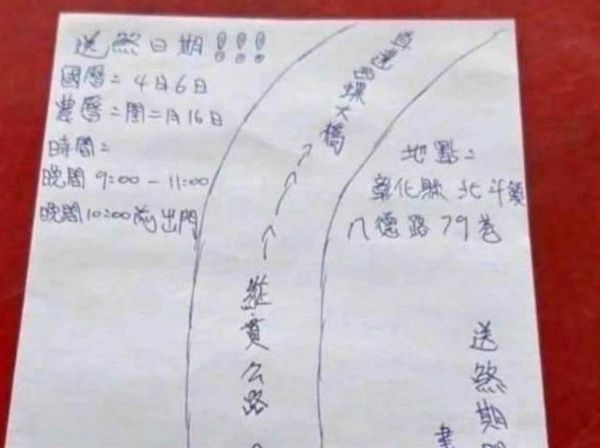 送煞日期!!!
國曆: 4月6日
農曆: 閏二月16日
時間:
晚間 9:00 - 11:00
晚間 10:00 前出門
直達西螺大橋
縱貫公路
地點:
彰化縣 北斗鎮
八德路 79巷
送煞期